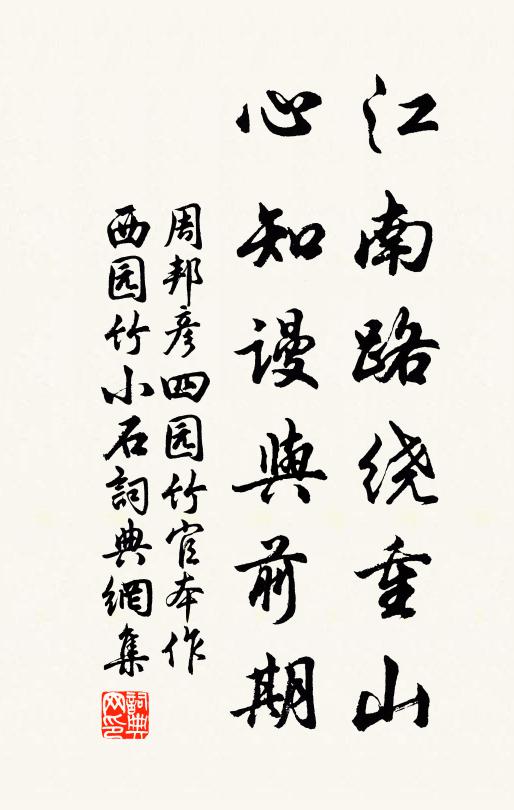 江南路绕重山
心知谩與前期
周邦彦四园竹官本作
西园竹小石詞典網集
詞典網印